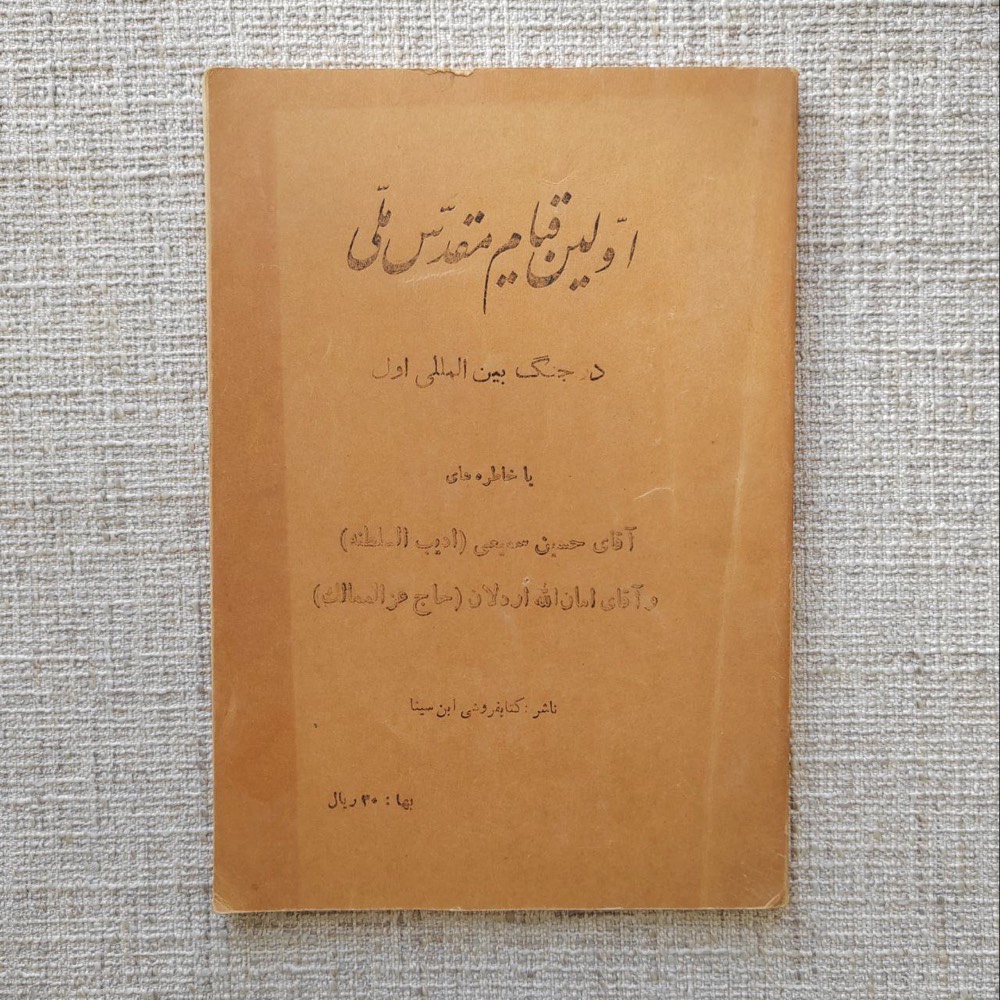 اوّلین قیام مقدّس ملّی
در جنگ بین المللی اول
با خاطره های
آقای حسین سمیعی (ادیب السلطنه)
و آقای امان‌الله اردلان (حاج عز الممالک)
ناشر : کتابفروشی ابن سینا
بها : ۳۰ ریال